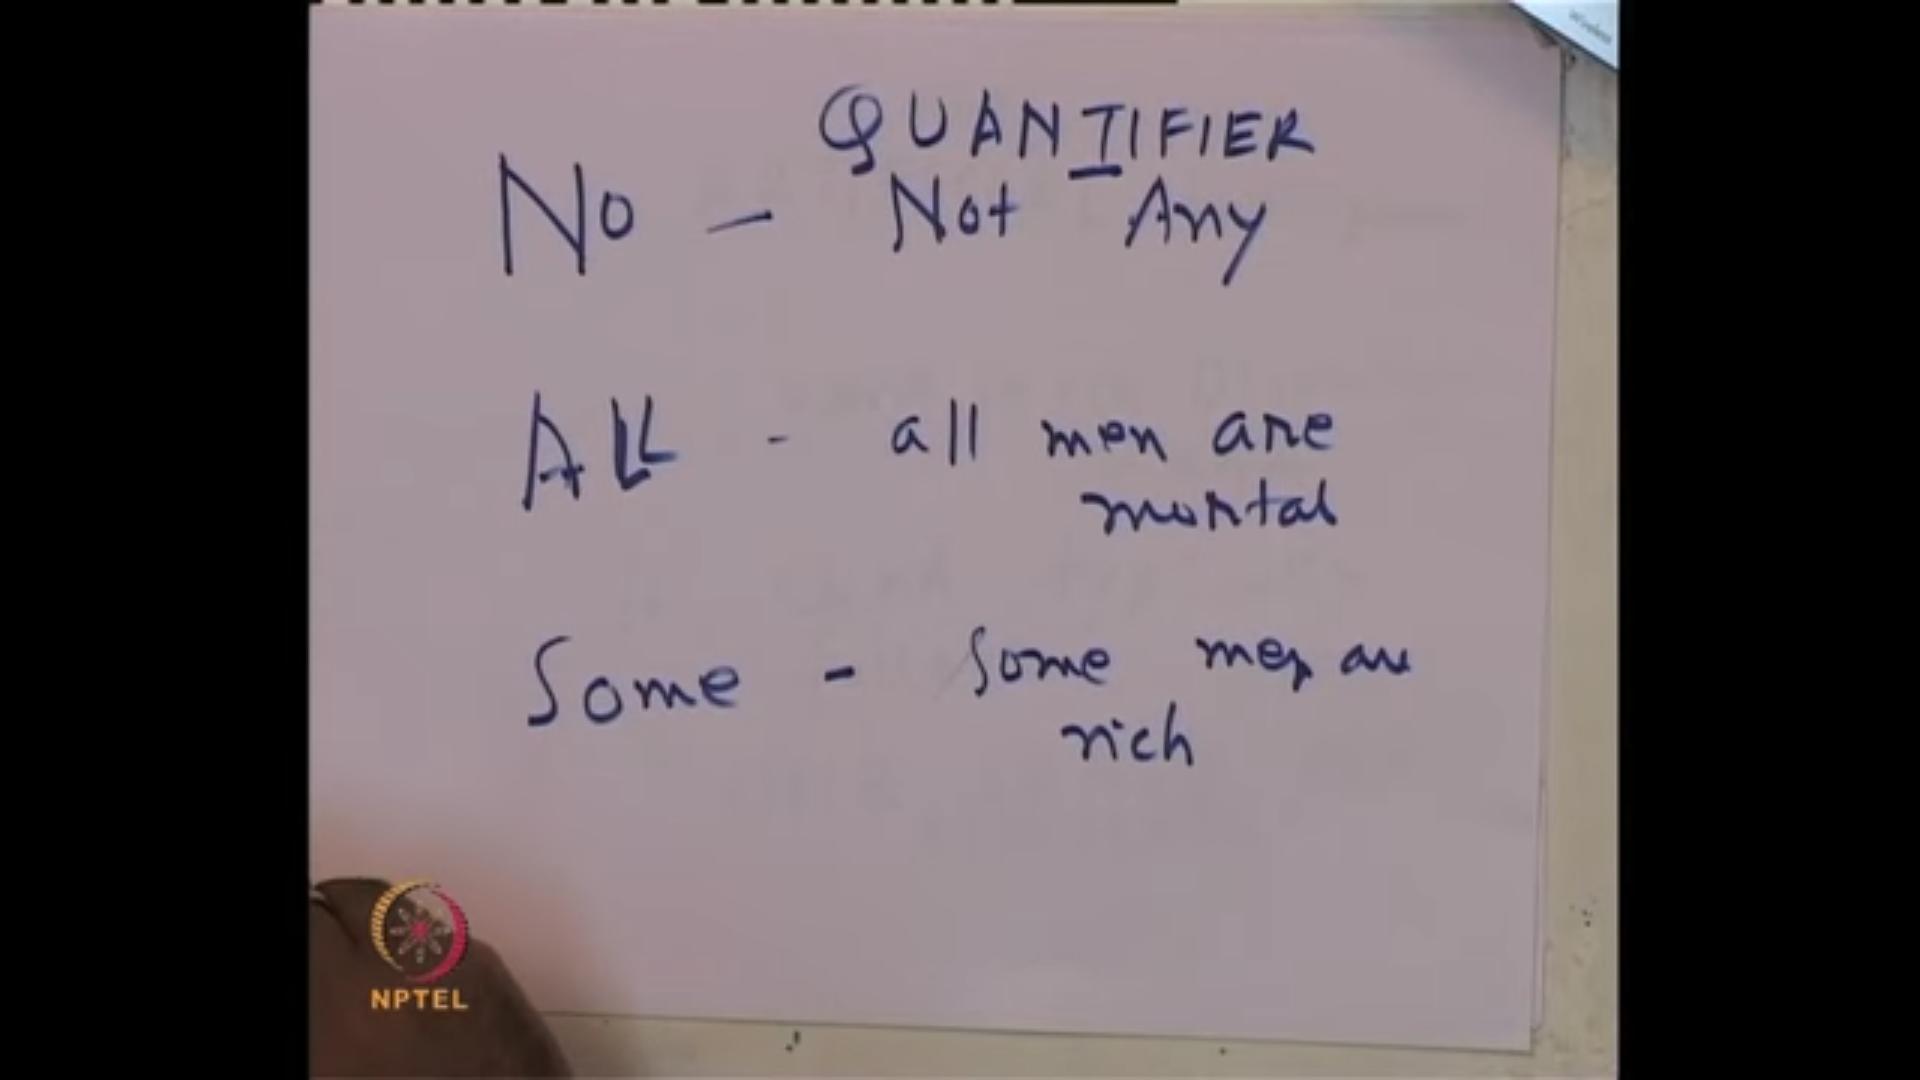 QUANTIFIER
No - Not Any
ALL - all men are
mortal
Some - Some men are
rich
NPTEL